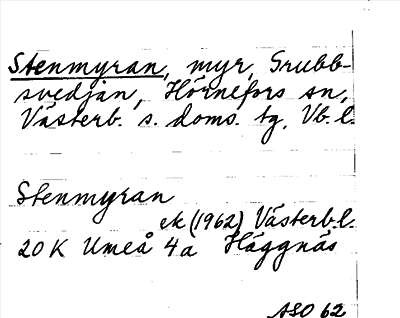 Stenmyran, myr, Grubb-
svedjan, Hörnefors sn,
Västerb. s. doms. tg, Vb. l.
Stenmyran
ek (1962) Västerb.l.
20K Umeå 4a Häggnäs
ASO 62